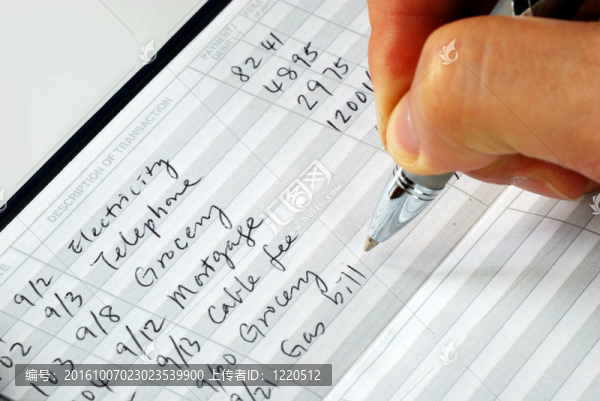 PAYMENT /
DEBIT
DESCRIPTION OF TRANSACTION
9/2 Electricity 82 41
9/3 Telephone 48 95
9/8 Grocery 29 75
9/12 Mortgage 1200
9/13 Cable fee
Grocery
9/21 Gas bill
编号:20161007023023539900 上传者ID:1220512